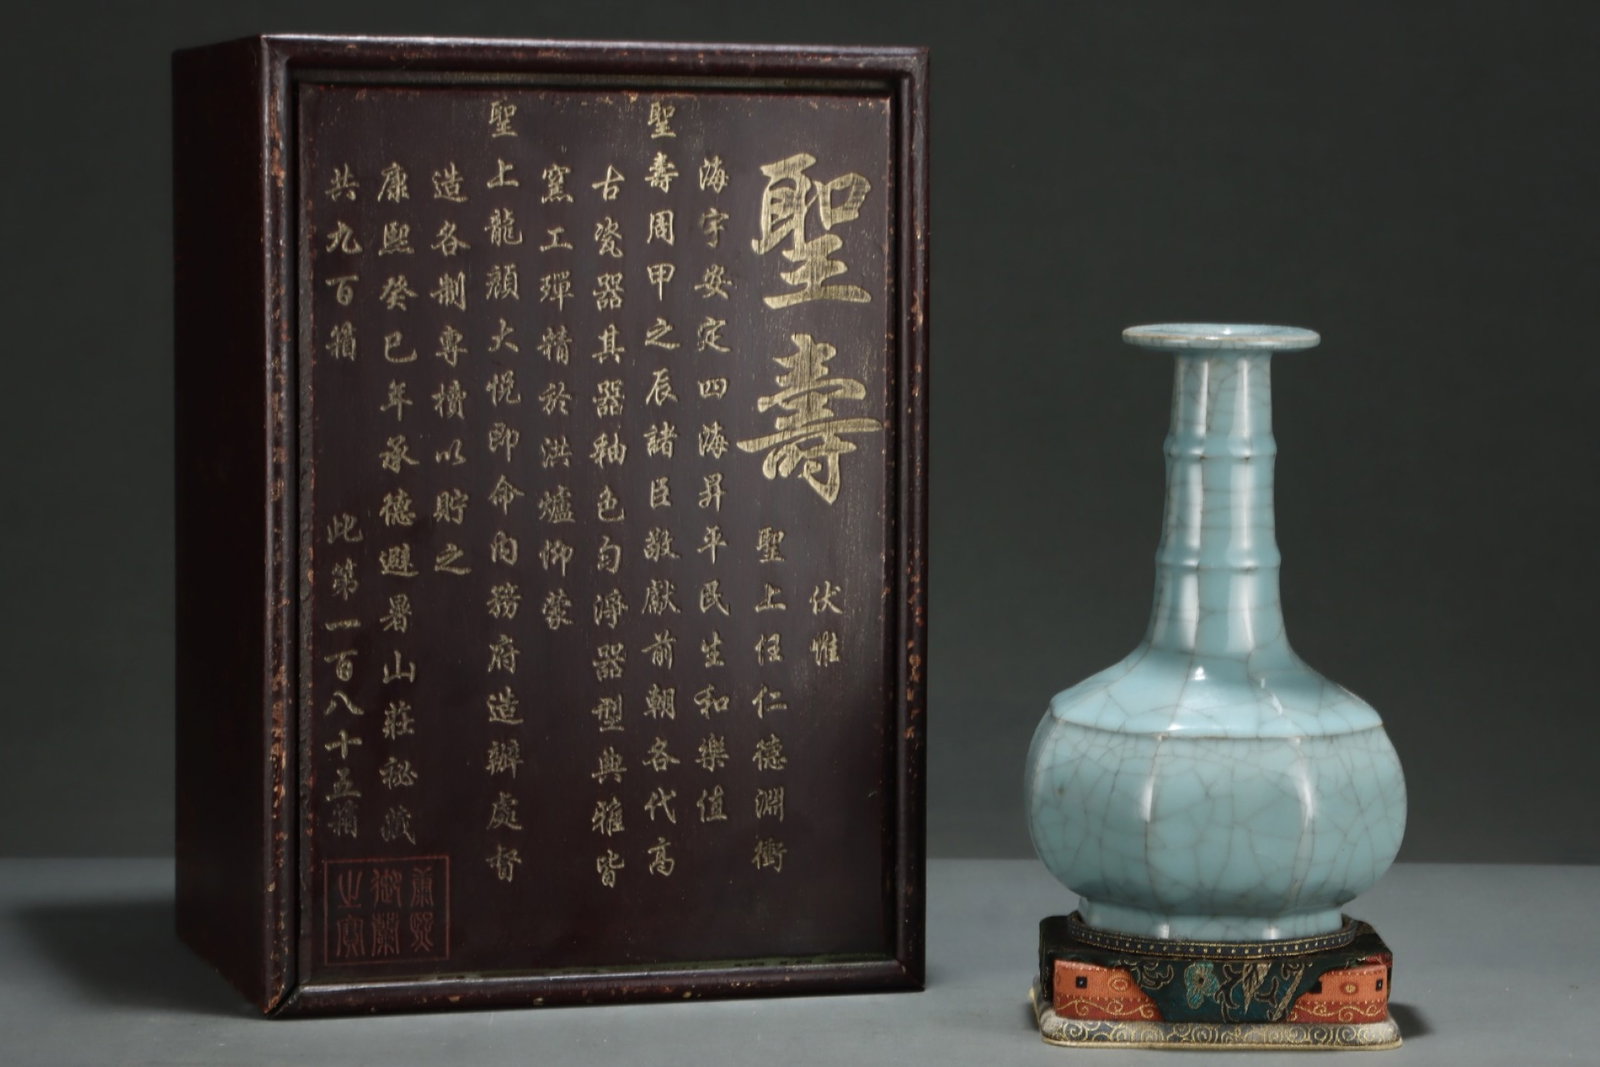 聖壽
伏惟
聖上任仁德淵衝
海宇安定四海昇平民生和樂值
聖壽周甲之辰諸臣敬獻前朝各代高
古瓷器其器釉色勻淨器型典雅皆
窯工殫精於洪爐仰蒙
聖上龍顏大悅即命內務府造辦處督
造各制專櫝以貯之
康熙癸巳年承德避暑山莊秘藏
共九百箱 此第一百八十五箱
康熙
御覽
之寶